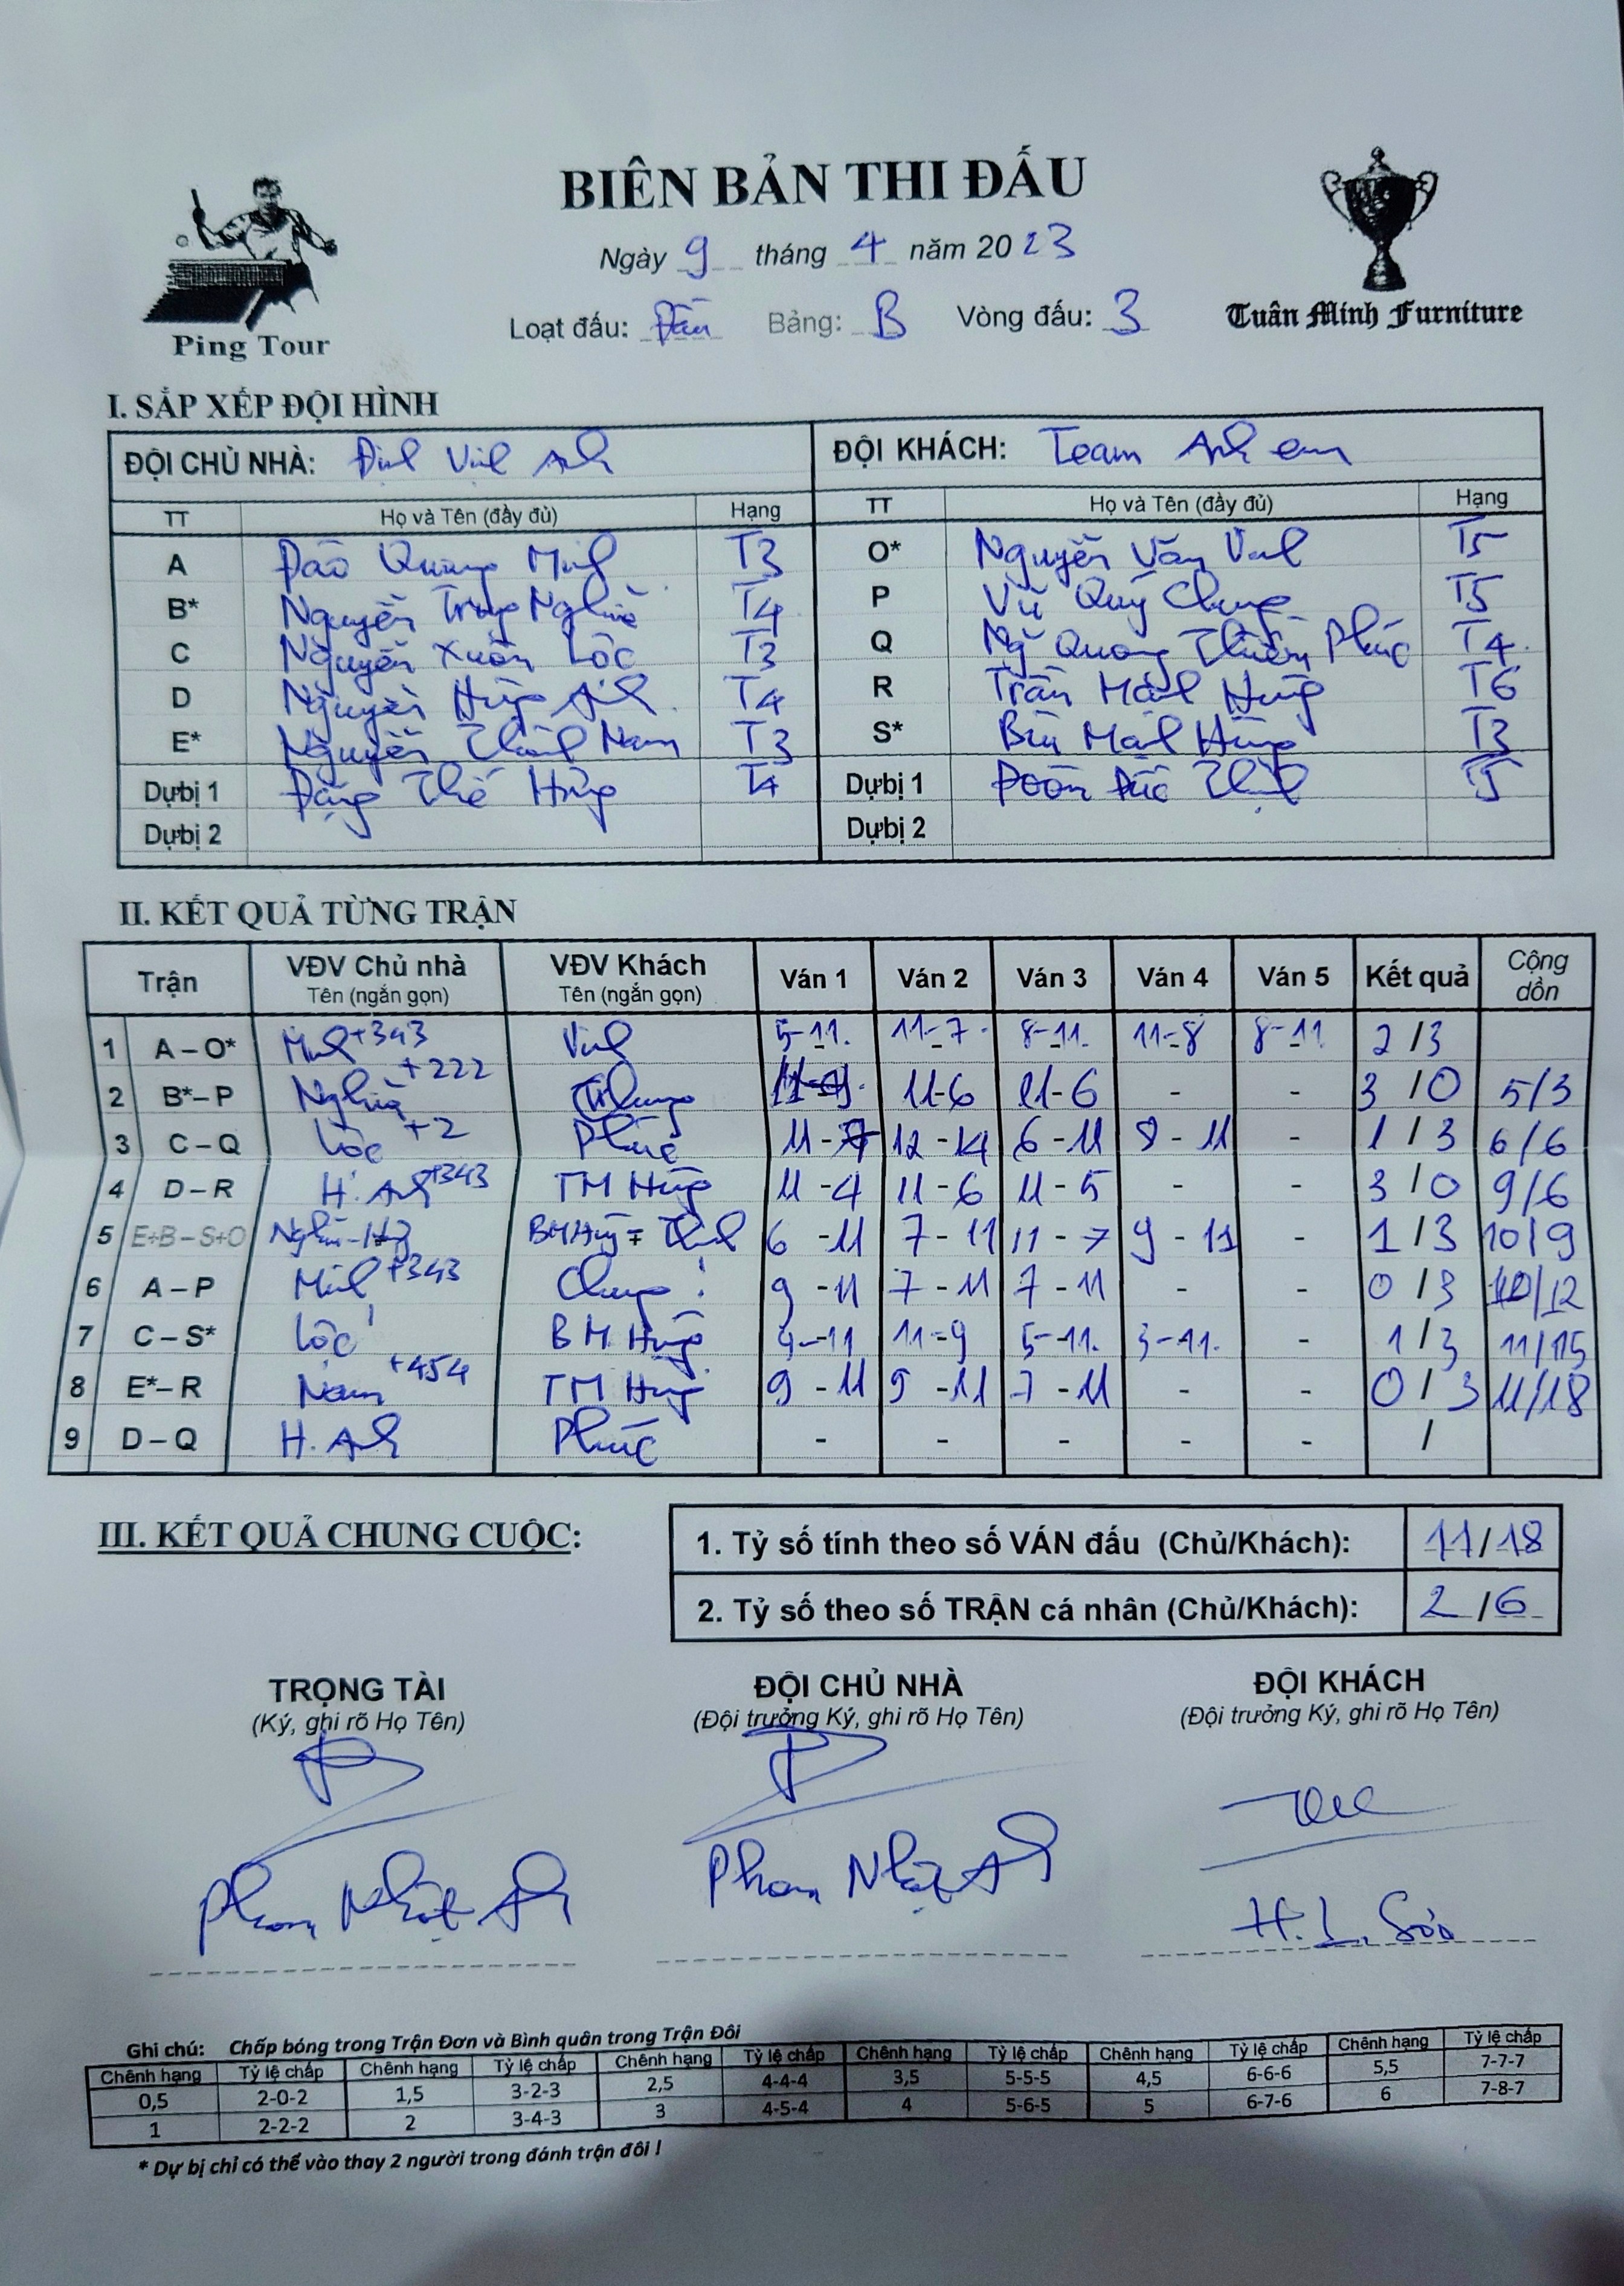 BIÊN BẢN THI ĐẤU
Ngày 9 tháng 4 năm 2023
Ping Tour
Loạt đấu: Bảng: B Vòng đấu: 3
Tuân Minh Furniture
I. SẮP XẾP ĐỘI HÌNH
ĐỘI CHỦ NHÀ: Đinh Vinh Anh ĐỘI KHÁCH: Team Anh em
TT Họ và Tên (đầy đủ) Hạng TT Họ và Tên (đầy đủ) Hạng
A Đào Quang Minh T3 O* Nguyễn Văn Vinh T5
B* Nguyễn Trung Nghĩa T4 P Vũ Quý Chung T5
C Nguyễn Xuân Lộc T3 Q Ng Quang Thiên Phúc T4
D Nguyễn Hùng Anh T4 R Trần Mạnh Hùng T6
E* Nguyễn Thành Nam T3 S* Bùi Mạnh Hùng T3
Dự bị 1 Đặng Thế Hùng T4 Dự bị 1 Đoàn Đức Thịnh T5
Dự bị 2 Dự bị 2
II. KẾT QUẢ TỪNG TRẬN
Trận VĐV Chủ nhà Tên (ngắn gọn) VĐV Khách Tên (ngắn gọn) Ván 1 Ván 2 Ván 3 Ván 4 Ván 5 Kết quả Cộng dồn
1 A – O* Minh +343 Vinh 5-11 11-7 8-11 11-8 8-11 2/3
2 B* – P Nghĩa +222 Chung 11-6 11-6 - - 3/0 5/3
3 C – Q Lộc +2 Phúc 11-7 12-14 6-11 9-11 - 1/3 6/6
4 D – R H. Anh +343 TM Hùng 11-4 11-6 11-5 - - 3/0 9/6
5 E+B – S+O Nghĩa - Hg BM Hùng + 6-11 7-11 11-7 9-11 - 1/3 10/9
6 A – P Minh +343 Chung 9-11 7-11 7-11 - - 0/3 10/12
7 C – S* Lộc BM Hùng 4-11 11-9 5-11 3-11 - 1/3 11/15
8 E* – R Nam +454 TM Hùng 9-11 9-11 7-11 - - 0/3 11/18
9 D – Q H. Anh Phúc - - - - - /
III. KẾT QUẢ CHUNG CUỘC:
1. Tỷ số tính theo số VÁN đấu (Chủ/Khách): 11/18
2. Tỷ số theo số TRẬN cá nhân (Chủ/Khách): 2/6
TRỌNG TÀI ĐỘI CHỦ NHÀ ĐỘI KHÁCH
(Ký, ghi rõ Họ Tên) (Đội trưởng Ký, ghi rõ Họ Tên) (Đội trưởng Ký, ghi rõ Họ Tên)
Phan Nhật Anh Phan Nhật Anh H.L. Sơn
Ghi chú: Chấp bóng trong Trận Đơn và Bình quân trong Trận Đôi
Chênh hạng Tỷ lệ chấp Chênh hạng Tỷ lệ chấp Chênh hạng Tỷ lệ chấp Chênh hạng Tỷ lệ chấp Chênh hạng Tỷ lệ chấp Chênh hạng Tỷ lệ chấp
0,5 2-0-2 1,5 3-2-3 2,5 4-4-4 3,5 5-5-5 4,5 6-6-6 5,5 7-7-7
1 2-2-2 2 3-4-3 3 4-5-4 4 5-6-5 5 6-7-6 6 7-8-7
* Dự bị chỉ có thể vào thay 2 người trong đánh trận đôi !